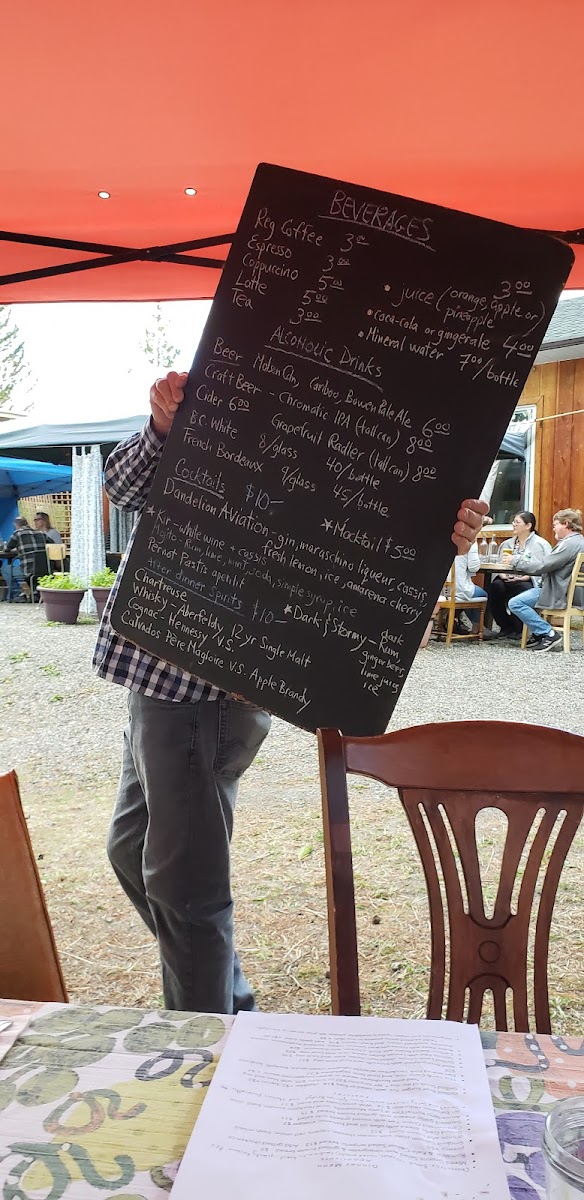 BEVERAGES
Reg Coffee 3.00
Espresso 3.00
Coppuccino 5.00
Latte 5.00
Tea 3.00
• juice (orange, apple or pineapple) 3.00
• coca-cola or gingerale 4.00
• Mineral water 7.00/bottle
Alcoholic Drinks
Beer Molson Cdn, Cariboo, Bowen Pale Ale 6.00
Craft Beer - Chromatic IPA (tall can) 8.00
Grapefruit Radler (tall can) 8.00
Cider 6.00
B.C. White 8/glass 40/bottle
French Bordeaux 9/glass 45/bottle
Cocktails $10-
*Mocktail $5.00
Dandelion Aviation - gin, maraschino liqueur, cassis,
fresh lemon, ice, amarena cherry
*Kir - white wine + cassis
Mojito - Rum, lime, mint, soda, simple syrup, ice
Pernot Pastis aperitif
After dinner Spirits $10-
*Dark & Stormy - dark
rum,
ginger beer,
lime juice,
ice
Chartreuse
Whiskey - Aberfeldy 12 yr Single Malt
Cognac - Hennessy V.S.
Calvados Père Magloire V.S. Apple Brandy